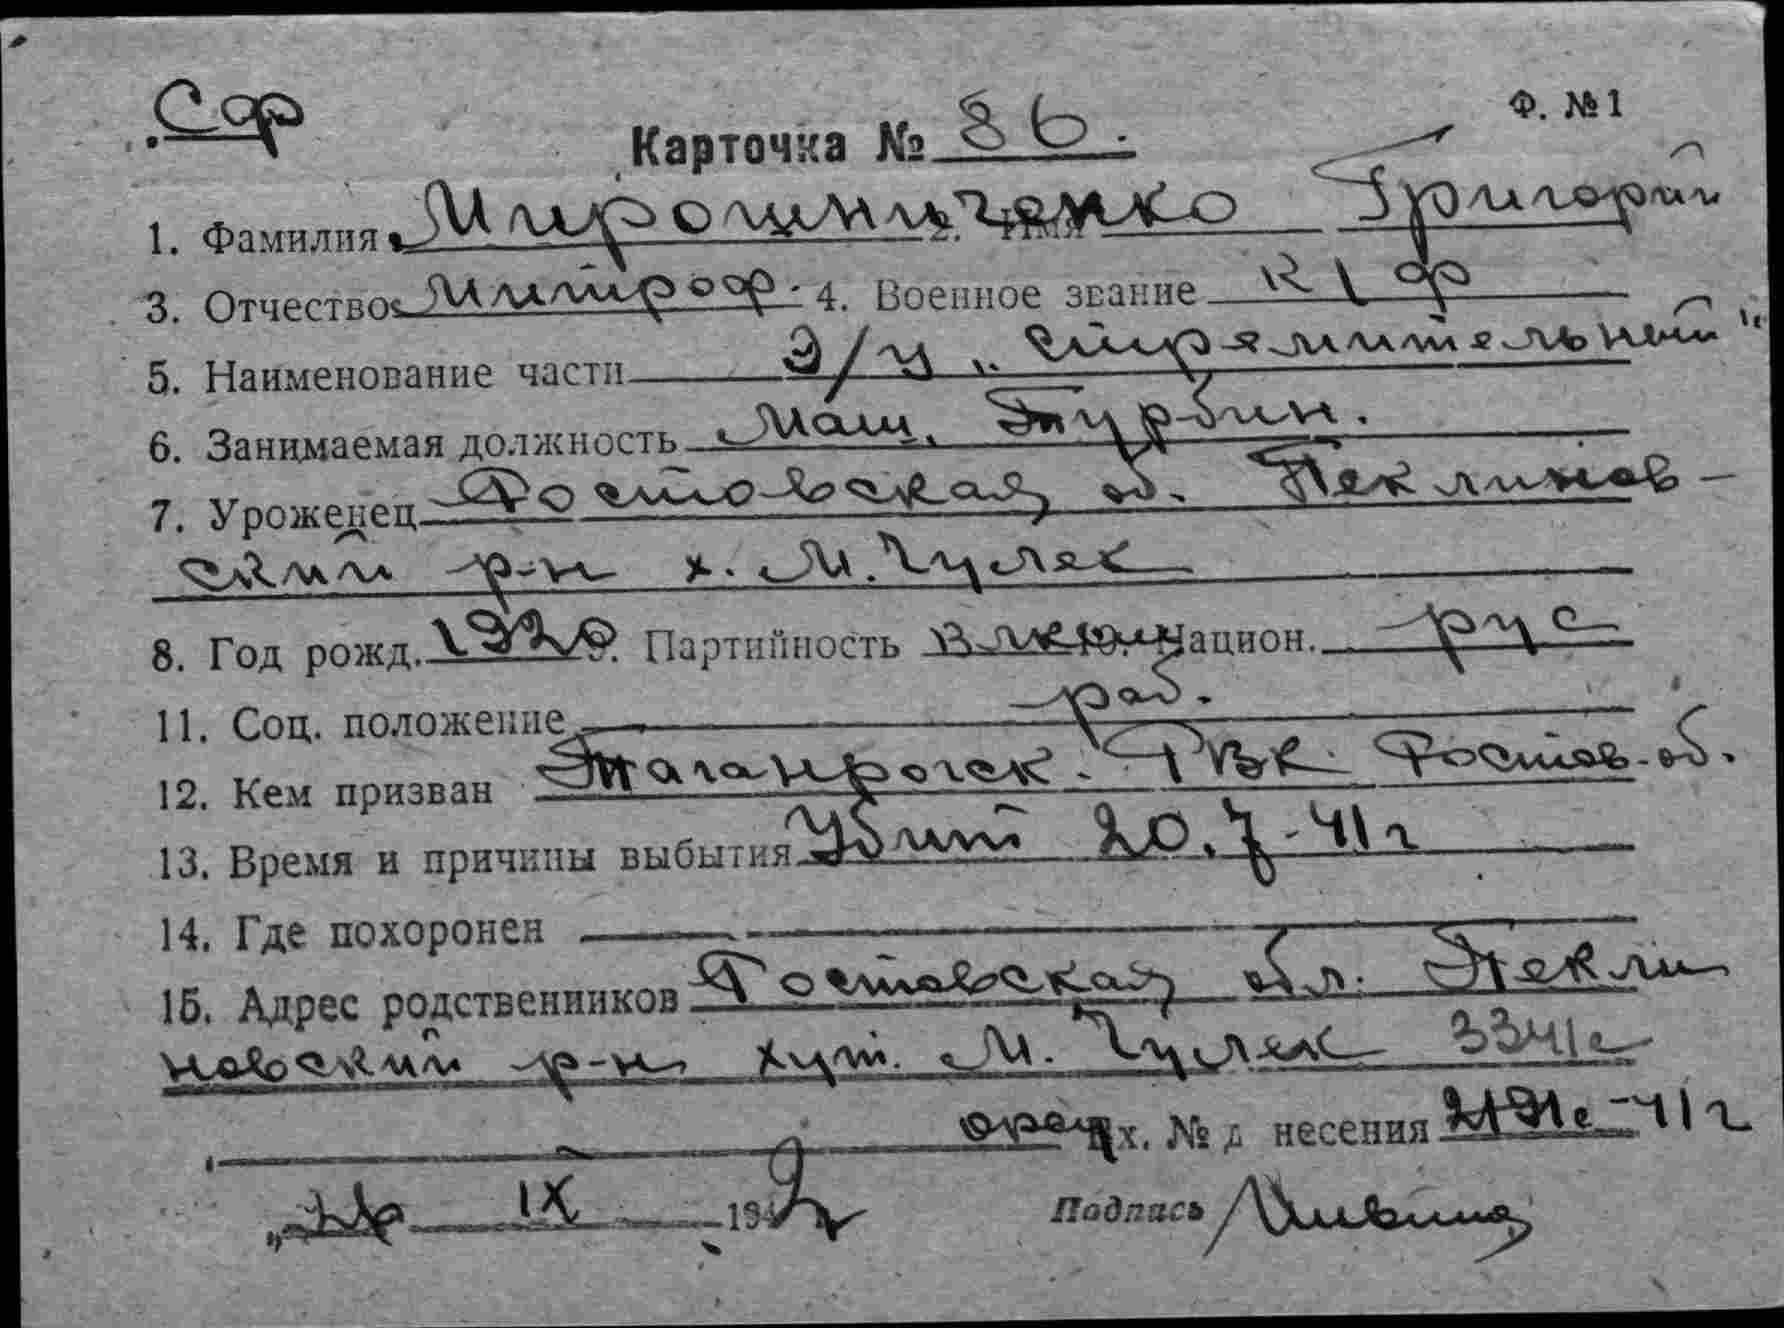 Сф
Ф. №1
Карточка № 86.
1. Фамилия Мирошниченко 2. Имя Григорий
3. Отчество Митроф. 4. Военное звание К1ф
5. Наименование части Э/м „Стремительный"
6. Занимаемая должность Маш. Турбин.
7. Уроженец Ростовская об. Неклинов-
ский р-н х. М. Чулек
8. Год рожд. 1920 9. Партийность ВЛКСМ Национ. рус
11. Соц. положение раб.
12. Кем призван Таганрогск. РВК Ростов. об.
13. Время и причины выбытия Убит 20.7-41г
14. Где похоронен
15. Адрес родственников Ростовская обл. Некли
новский р-н хут. М. Чулек 3341с
Вх. № д несения 2191с-41г
IX 194
Подпись